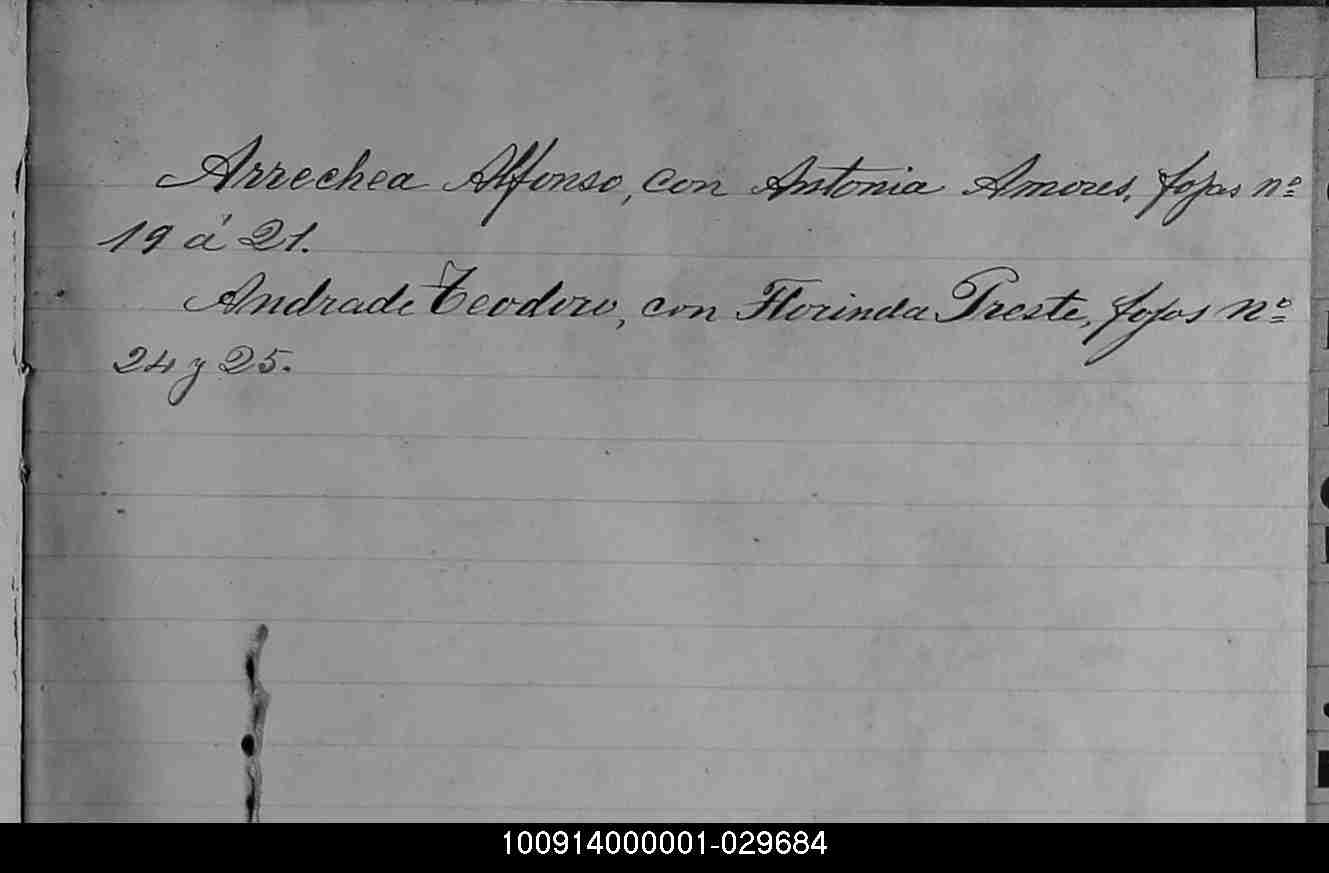 Arrechea Alfonso, con Antonia Amores, fojas nº
19 á 21.
Andrade Teodoro, con Florinda Preste, fojas nº
24 y 25.
100914000001-029684